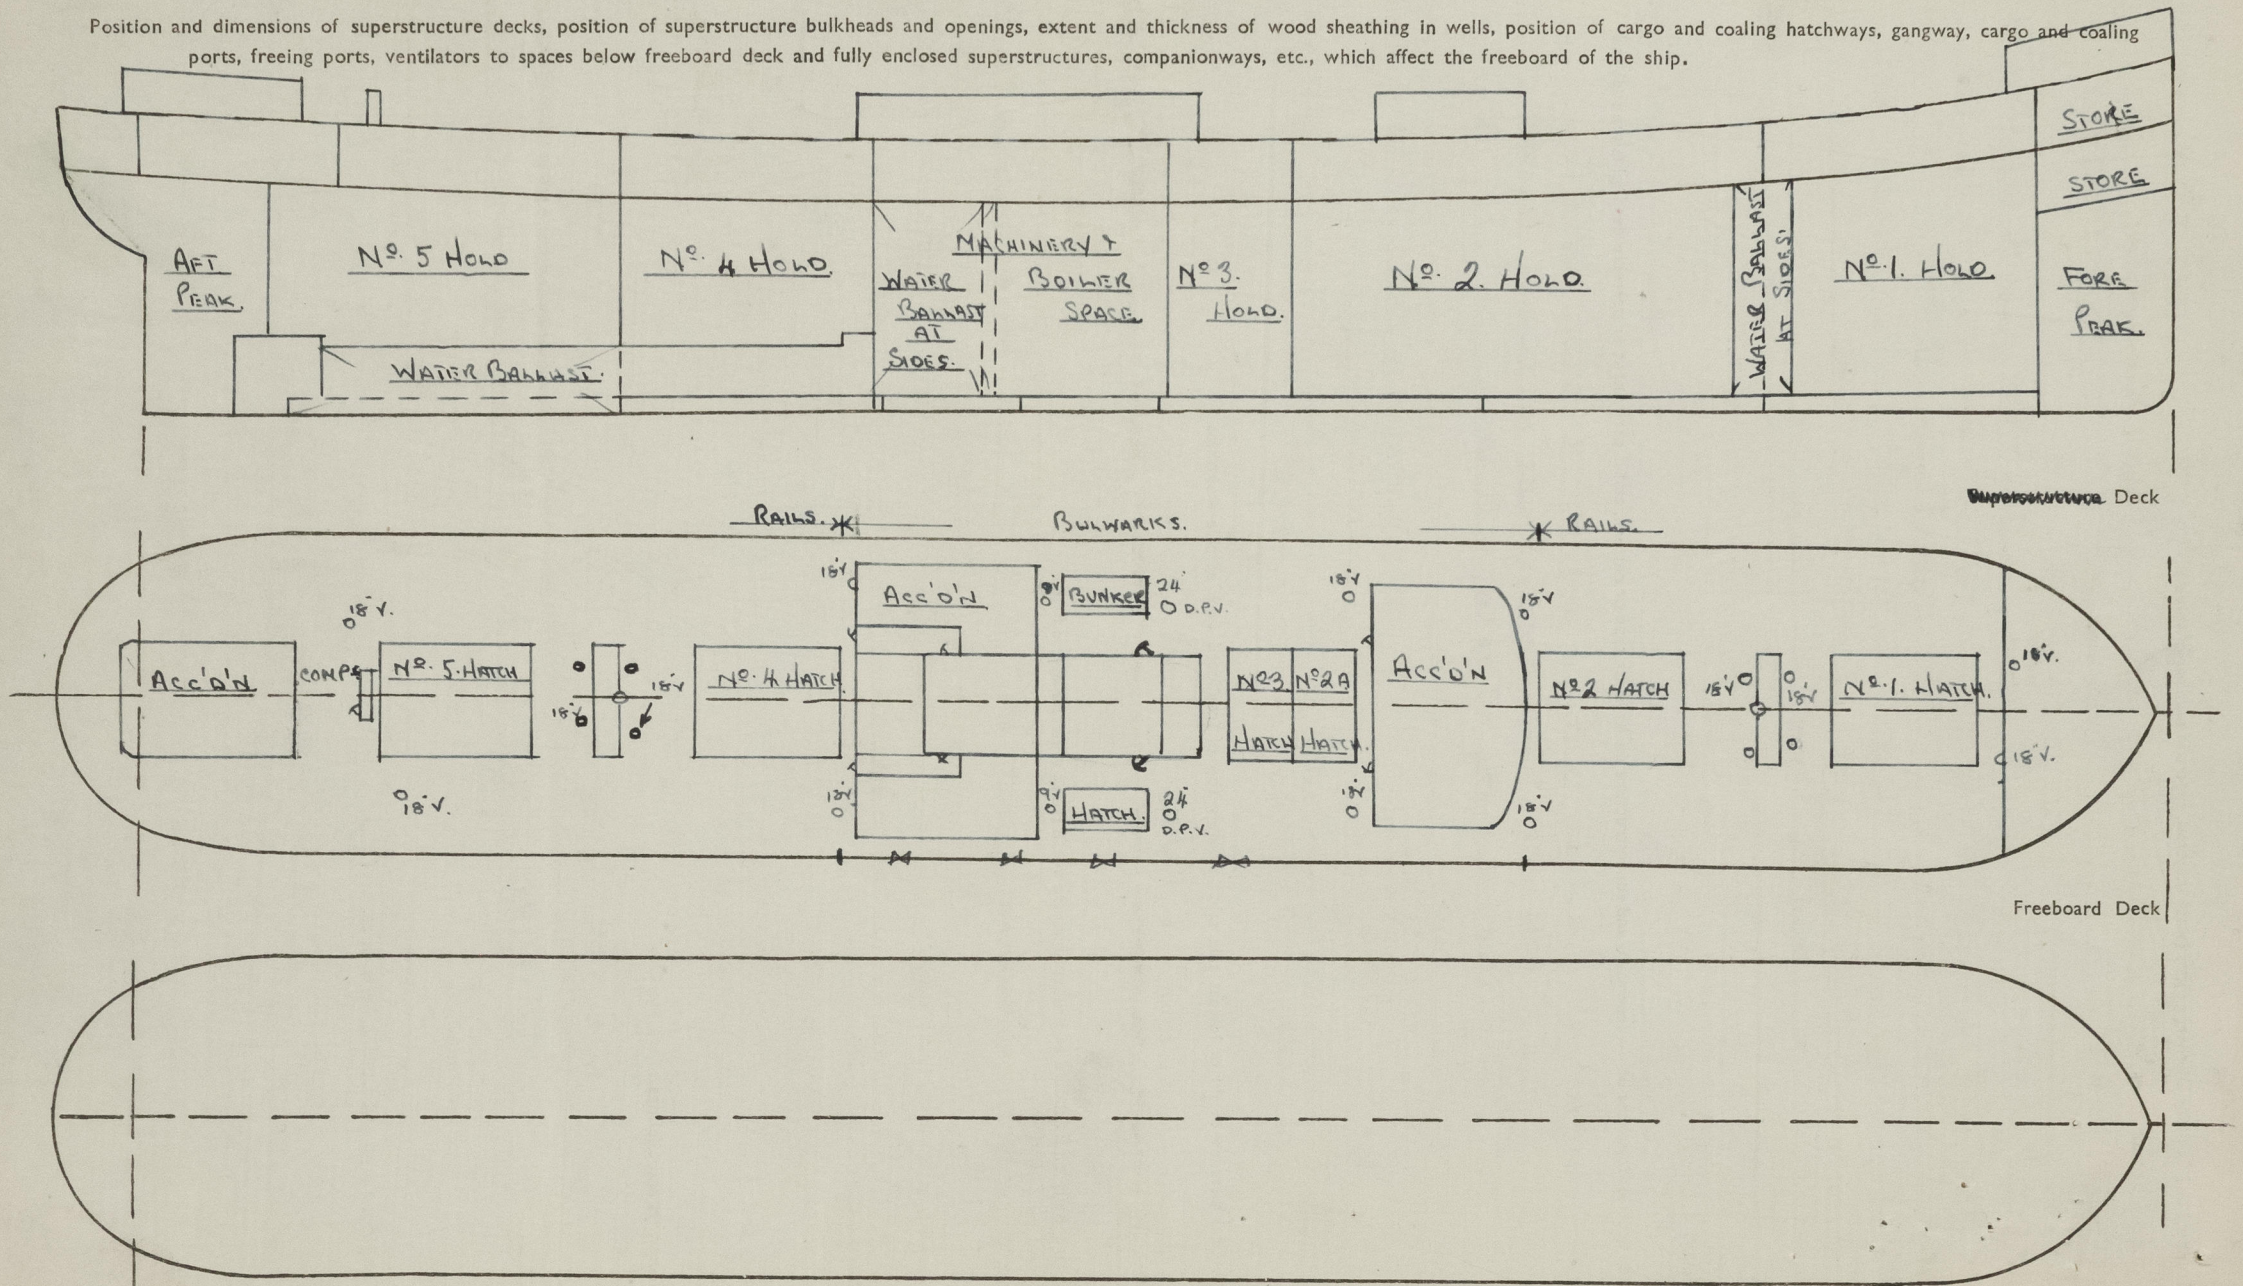 Position and dimensions of superstructure decks, position of superstructure bulkheads and openings, extent and thickness of wood sheathing in wells, position of cargo and coaling hatchways, gangway, cargo and coaling
ports, freeing ports, ventilators to spaces below freeboard deck and fully enclosed superstructures, companionways, etc., which affect the freeboard of the ship.
STORE
STORE
AFT
PEAK.
Nº. 5 HOLD
Nº. 4 HOLD.
MACHINERY &
BOILER
SPACE
WATER
BALLAST
AT
SIDES.
Nº 3.
HOLD.
Nº. 2. HOLD.
WATER BALLAST
AT SIDES.
Nº.1. HOLD.
FORE
PEAK.
WATER BALLAST.
Superstructure Deck
RAILS.
BULWARKS.
RAILS.
18" V
ACC'D'N
9" V
BUNKER
24"
D.P.V.
18" V
18" V
18" V.
ACC'D'N
COMP
Nº. 5. HATCH
18" V
18" V
Nº. 4 HATCH
Nº 3
HATCH
Nº 2A
HATCH.
ACC'D'N
Nº 2 HATCH
18" V
18" V
Nº.1. HATCH.
18" V.
18" V.
18" V.
18" V
9" V
HATCH.
24"
D.P.V.
18" V
18" V
Freeboard Deck